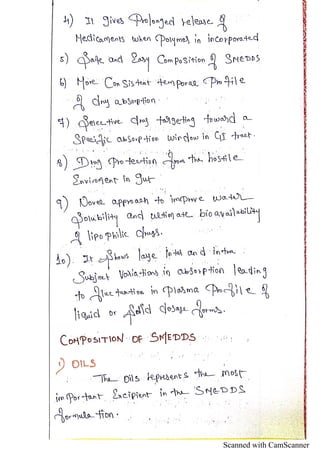 4) It gives Prolonged release of
Medicaments when Polymer is incorporated
5) Safe and Easy Composition of SMEDDS
6) More Consistent temporal Profile
of drug absorption.
7) Selective drug targeting toward a
Specific absorption window in GI tract.
8) Drug Protection from the hostile
Enviroment in gut
9) Novel approach to improve water
Solubility and ultimate bioavailability
of lipophilic drugs.
10). It Shows large inter and intra
Subject Variations in absorption leading
to fluctuation in plasma Profile of
liquid or Solid dosage forms.
COMPOSITION OF SMEDDS
1) OILS
The Oils represents the most
important Excipient in the SMEDDS
formulation.
Scanned with CamScanner